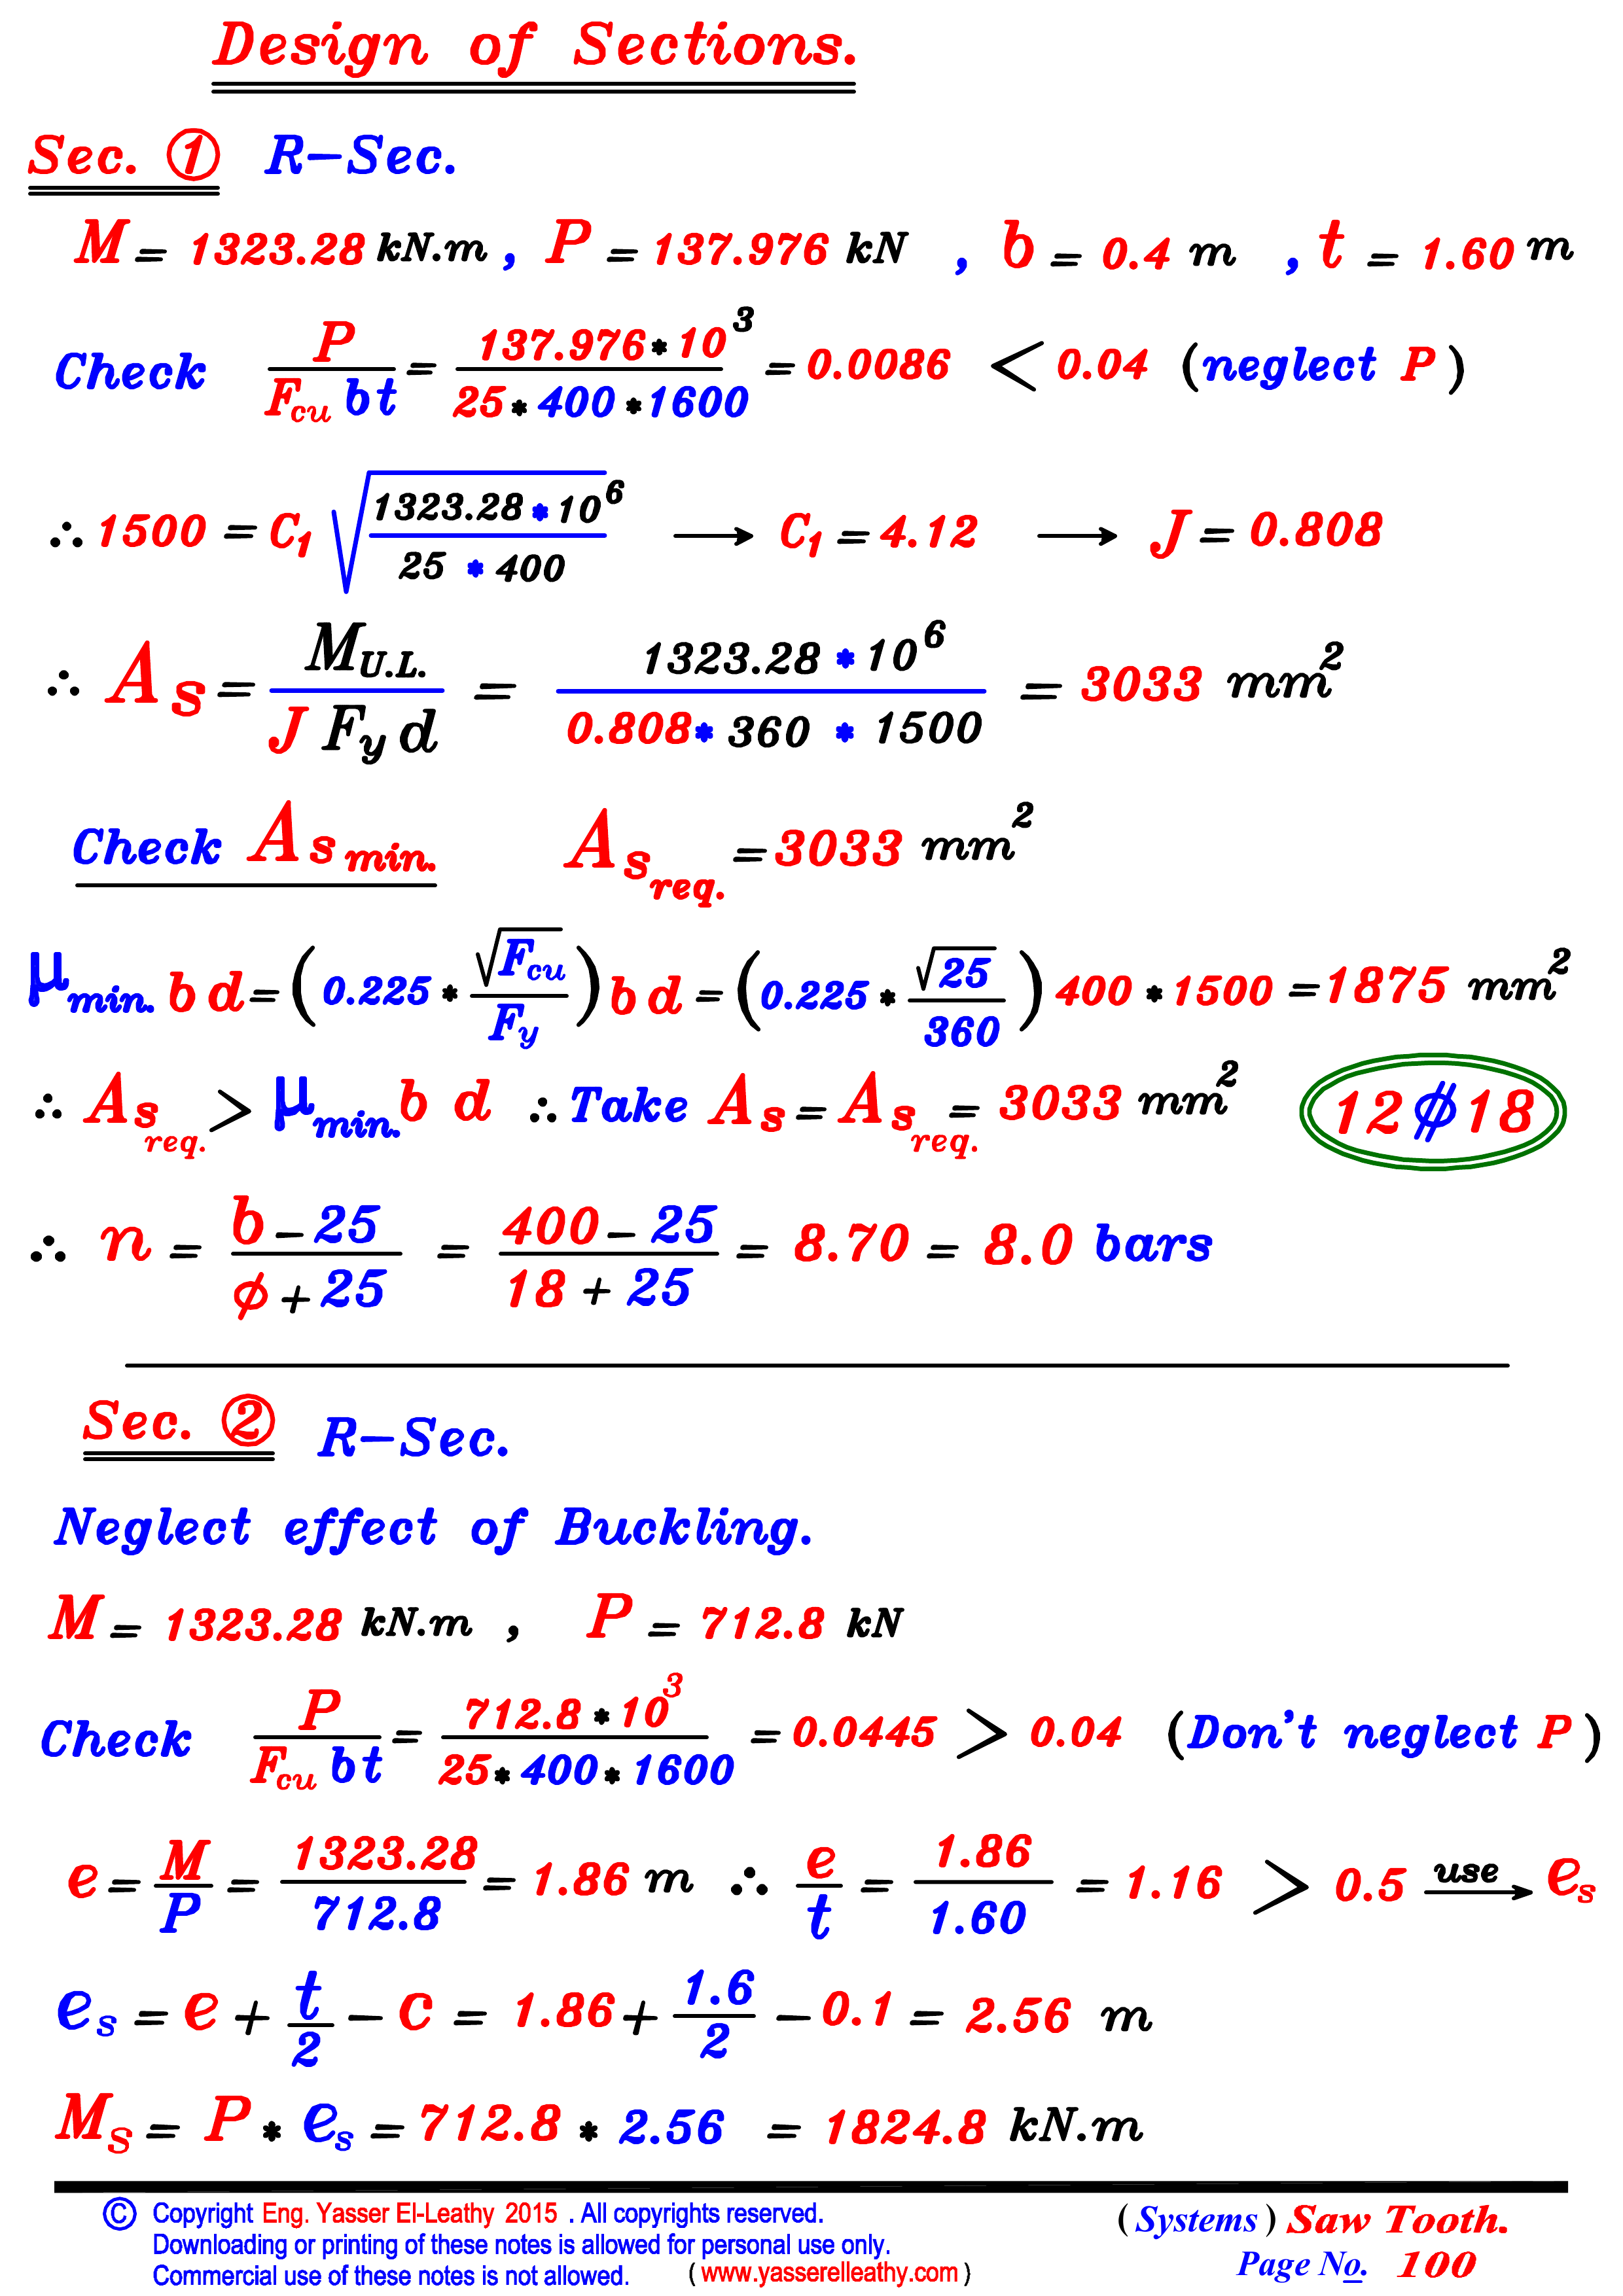 Design of Sections.
Sec. ① R-Sec.
M = 1323.28 kN.m , P = 137.976 kN , b = 0.4 m , t = 1.60 m
Check P / F_cu b t = 137.976 * 10^3 / 25 * 400 * 1600 = 0.0086 < 0.04 (neglect P)
∴ 1500 = C_1 √(1323.28 * 10^6 / 25 * 400) → C_1 = 4.12 → J = 0.808
∴ A_s = M_U.L. / J F_y d = 1323.28 * 10^6 / 0.808 * 360 * 1500 = 3033 mm^2
Check A_s min. A_s req. = 3033 mm^2
μ_min. b d = (0.225 * √F_cu / F_y) b d = (0.225 * √25 / 360) 400 * 1500 = 1875 mm^2
∴ A_s req. > μ_min. b d ∴ Take A_s = A_s req. = 3033 mm^2 12 ⌀ 18
∴ n = b - 25 / ϕ + 25 = 400 - 25 / 18 + 25 = 8.70 = 8.0 bars
Sec. ② R-Sec.
Neglect effect of Buckling.
M = 1323.28 kN.m , P = 712.8 kN
Check P / F_cu b t = 712.8 * 10^3 / 25 * 400 * 1600 = 0.0445 > 0.04 (Don't neglect P)
e = M / P = 1323.28 / 712.8 = 1.86 m ∴ e / t = 1.86 / 1.60 = 1.16 > 0.5 use → e_s
e_s = e + t / 2 - c = 1.86 + 1.6 / 2 - 0.1 = 2.56 m
M_s = P * e_s = 712.8 * 2.56 = 1824.8 kN.m
© Copyright Eng. Yasser El-Leathy 2015 . All copyrights reserved.
Downloading or printing of these notes is allowed for personal use only.
Commercial use of these notes is not allowed. ( www.yasserelleathy.com )
(Systems) Saw Tooth.
Page No. 100